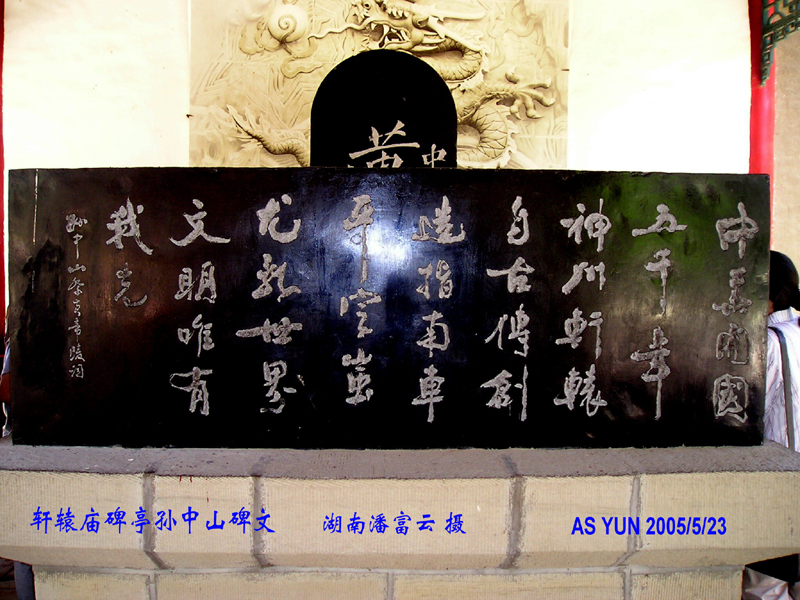 中
中華開國
五千年
神州軒轅
自古傳創
造指南車
平定蚩
尤亂世界
文明唯有
我先
孙中山祭黄帝陵词
轩辕庙碑亭孙中山碑文
湖南潘富云 摄
AS YUN 2005/5/23